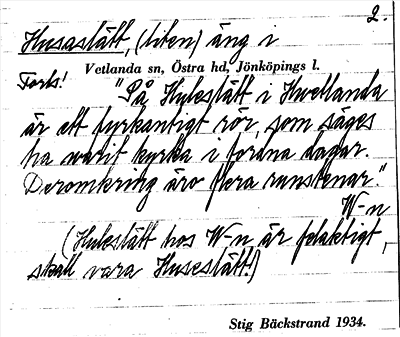 2.
Husaslätt, (liten) äng i
Vetlanda sn, Östra hd, Jönköpings l.
Forts! "På Hyleslätt i Hwetlanda
är ett fyrkantigt rör, som säges
ha warit kyrka i fordna dagar.
Deromkring äro flera runstenar."
W-n
(Huleslätt hos W-n är felaktigt,
skall vara Huseslätt.)
Stig Bäckstrand 1934.